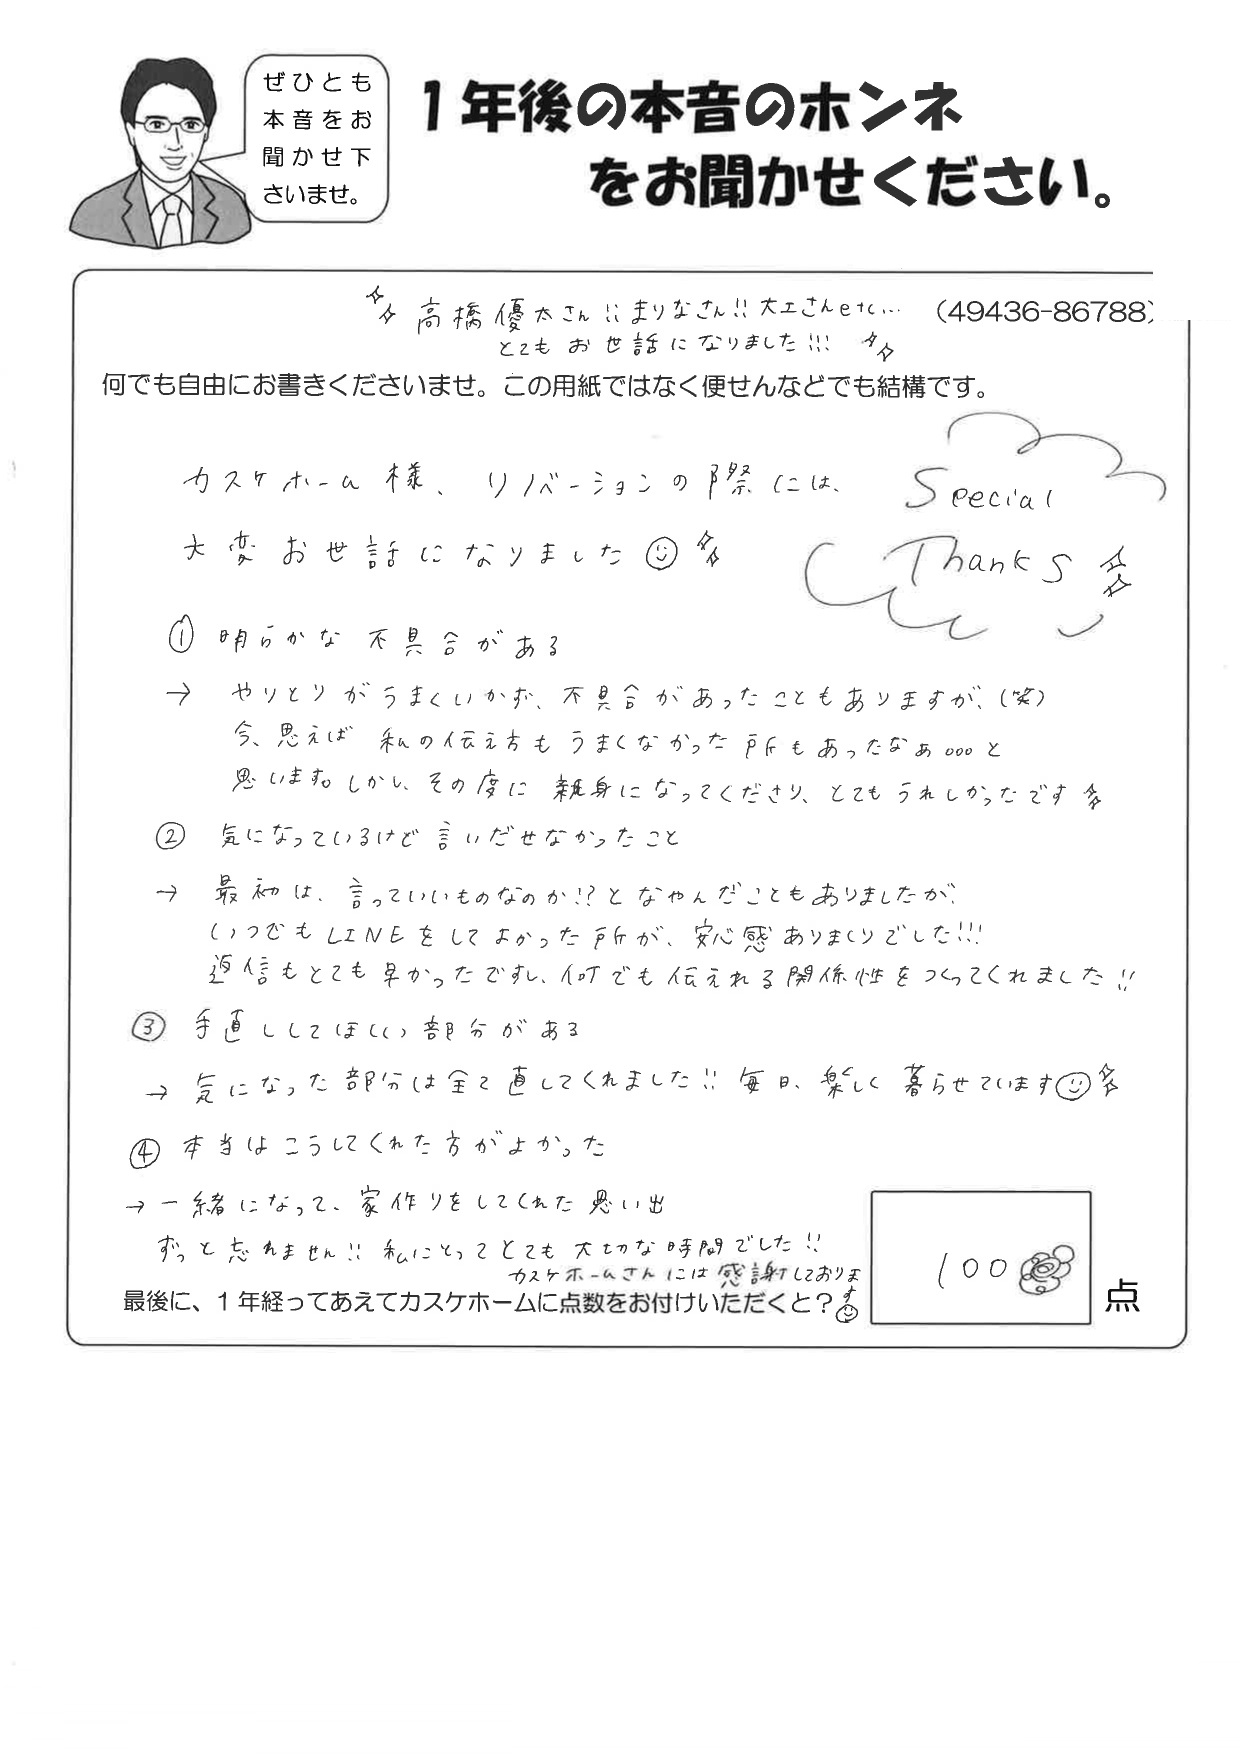 ぜひとも
本音をお
聞かせ下
さいませ。
1年後の本音のホンネ
をお聞かせください。
高橋優太さん!!まりなさん!!大工さんetc... (49436-86788)
とてもお世話になりました!!!
何でも自由にお書きくださいませ。この用紙ではなく便せんなどでも結構です。
カスケホーム様、リノベーションの際には、
大変お世話になりました
Special
Thanks
① 明らかな不具合がある
→ やりとりがうまくいかず、不具合があったこともありますが、(笑)
今、思えば 私の伝え方もうまくなかった所もあったなぁ。。。と
思います。しかし、その度に 親身になってくださり、とてもうれしかったです
② 気になっているけど言いだせなかったこと
→ 最初は、言っていいものなのか!?となやんだこともありましたが、
いつでもLINEをしてよかった所が、安心感ありまくりでした!!!
返信もとても早かったですし、何でも伝えれる関係性をつくってくれました!!
③ 手直ししてほしい部分がある
→ 気になった部分は全て直してくれました!! 毎日、楽しく暮らせています
④ 本当はこうしてくれた方がよかった
→ 一緒になって、家作りをしてくれた思い出
ずっと忘れません!! 私にとってとても大切な時間でした!!
カスケホームさんには感謝しております
最後に、1年経ってあえてカスケホームに点数をお付けいただくと?
100
点